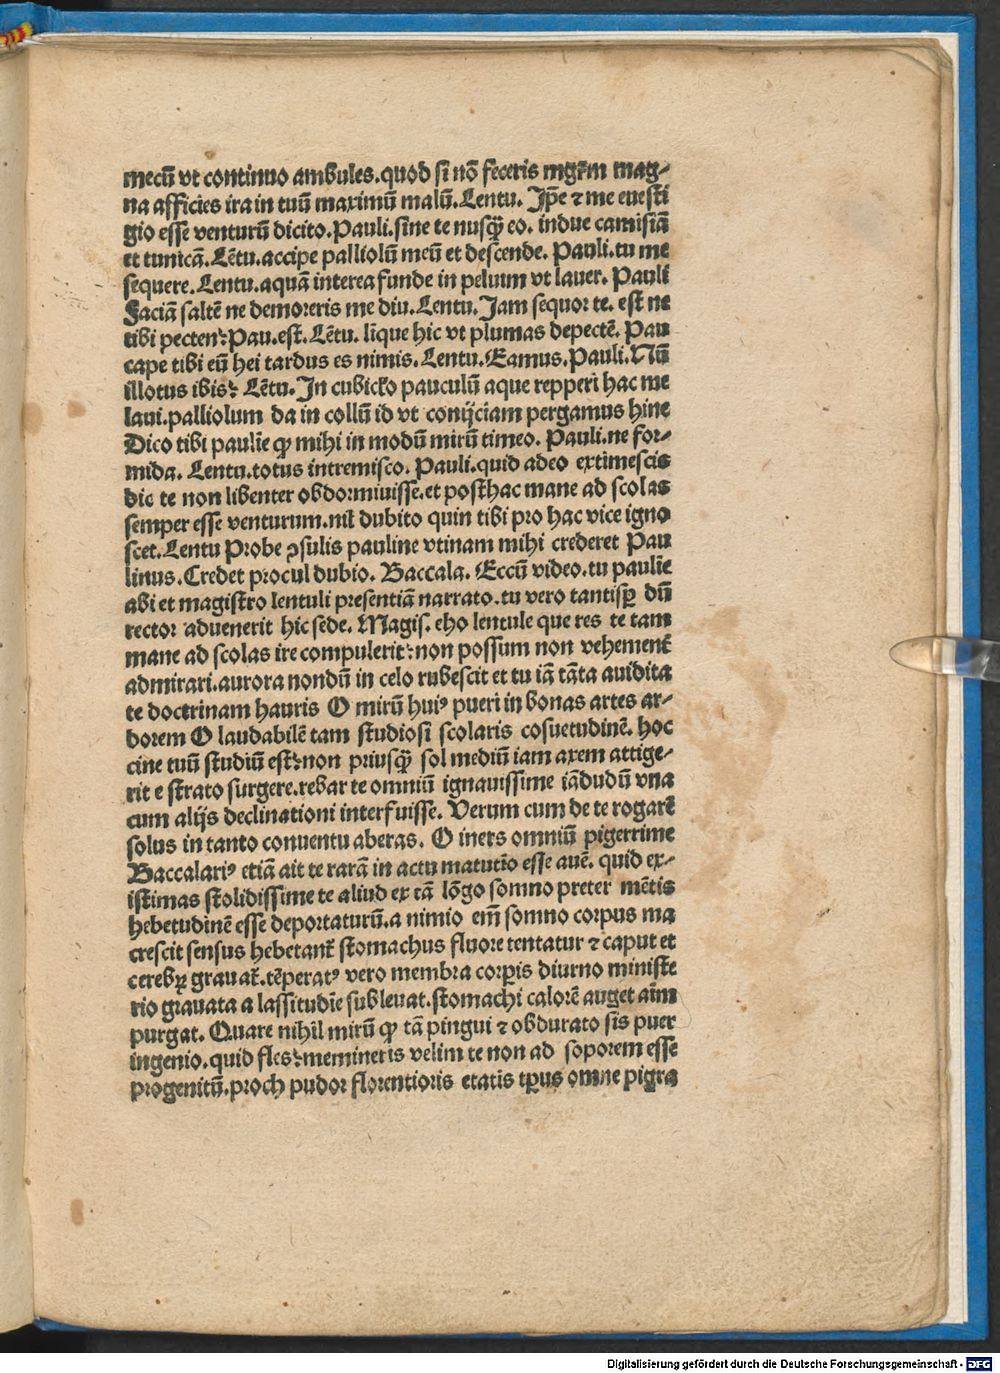 mecū vt continuo ambules.quod si nō feceris mgr̄m mag⸗
na afficies ira in tuū maximū malū.Lentu. Ip̄e ⁊ me euesti
gio esse venturū dicito.Pauli.sine te nusq̄ʒ eo. indue camisiā
et tunicā.Lētu.accipe palliolū meū et descende. Pauli.tu me
sequere.Lentu.aquā interea funde in peluim vt lauer. Pauli
Faciā saltē ne demoreris me diu.Lentu.Jam sequor te. est ne
tibi pecten?Pau.est.Lētu. līque hic vt plumas depectē. Pau
cape tibi eū hei tardus es nimis.Lentu.Eamus.Pauli.Nū
illotus ibis? Lētu.In cubicľo pauculū aque repperi hac me
laui.palliolum da in collū id vt conijciam pergamus hinc
Dico tibi pauline ꝙ mihi in modū mirū timeo. Pauli.ne for⸗
mida. Lentu.totus intremisco. Pauli.quid adeo extimescis
dic te non libenter obdormiuisse.et posthac mane ad scolas
semper esse venturum.nil dubito quin tibi pro hac vice igno
scet.Lentu Probe ꝯsulis pauline vtinam mihi crederet Pau
linus.Credet procul dubio. Baccala. Eccū video.tu paulīe
abi et magistro lentuli presentiā narrato.tu vero tantisꝑ dū
rector aduenerit hic sede. Magis. eho lentule que res te tam
mane ad scolas ire compulerit?non possum non vehement̄
admirari.aurora nondū in celo rubescit et tu iā tāta auidita
te doctrinam hauris O mirū huiꝰ pueri in bonas artes ar⸗
dorem O laudabilē tam studiosi scolaris cosuetudinē. hoc
cine tuū studiū est?non priusq̄ʒ sol mediū iam axem attige⸗
rit e strato surgere.rebar te omniū ignauissime iādudū vna
cum alijs declinationi interfuisse. Verum cum de te rogarē
solus in tanto conuentu aberas. O iners omniū pigerrime
Baccalariꝰ etiā ait te rarā in actu matutīo esse auē. quid ex⸗
istimas stolidissime te aliud ex tā lōgo somno preter mētis
hebetudinē esse deportaturū.a nimio em̄ somno corpus ma
crescit sensus hebetant̄ stomachus fluore tentatur ⁊ caput et
cerebꝝ grauat̄.tēperatꝰ vero membra corꝑis diurno ministe
rio grauata a lassitudīe subleuat.stomachi calorē auget aīm
purgat. Quare nihil mirū ꝙ tā pingui ⁊ obdurato sis puer
ingenio.quid fles?memineris velim te non ad soporem esse
progenitū.proch pudor florentioris etatis tꝑus omne pigra
Digitalisierung gefördert durch die Deutsche Forschungsgemeinschaft - DFG